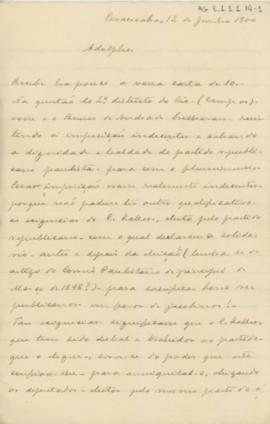 Piracicaba, 12 de Junho 1900
Adolpho,
Recebi ha pouco a vossa carta de 10.
Na questão do 2º districto do Rio - (Campos)
voce e o Bueno de Andrade brilharam resis
tindo á imposição indecente e salvando
a dignidade e lealdade do partido republi
cano paulista para com o fluminense.
Essas imposições eram realmente indecentes
porque não podem ter outro qualificativo
as exigencias do C. Salles, eleito pelo partido
republicano - com o qual declarou-se solida
rio - antes e depois da eleição (lembra-se os
artigos do Correio Paulistano de principios de
Março de 1898?) - para sacrificar bons re
publicanos em favor de
Tan exigencias significam que o C. Salles,
que tem sido desleal e trahidor ao partido
que o elegeu, serve-se do poder que este
confiou-lhe - para anniquilal-o, obrigando
os deputados - eleitos pelo mesmo partido á